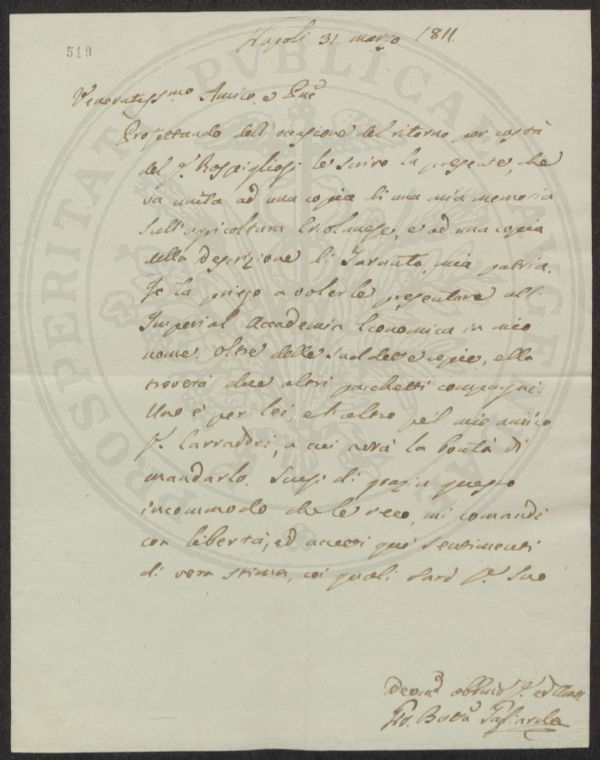 519
Napoli 31 marzo 1811
Veneratiss.mo Amico, e Pne
Profittando dell'occasione del ritorno per costà
del Sr. Rospigliosi le scrivo la presente, che
va unita ad una copia di una mia memoria
sull'agricoltura, e ad una copia
della descrizione di Taranto, mia patria.
Io la priego a volerle presentare all'
Imperial Accademia Economica in mio
nome. Oltre delle suddette copie, ella
troverà due altri pacchetti compagni.
Uno è per lei, e l'altro pel mio amico
Sr. Carradori, a cui avrà la bontà di
mandarlo. Scusi di grazia questo
incommodo che le reco, mi comandi
con libertà, ed accetti que' sentimenti
di vera stima, coi quali sarò Sr. Suo
Gio. Batta Gagliardo
PROSPERITATI PVBLICAE AVGENDAE